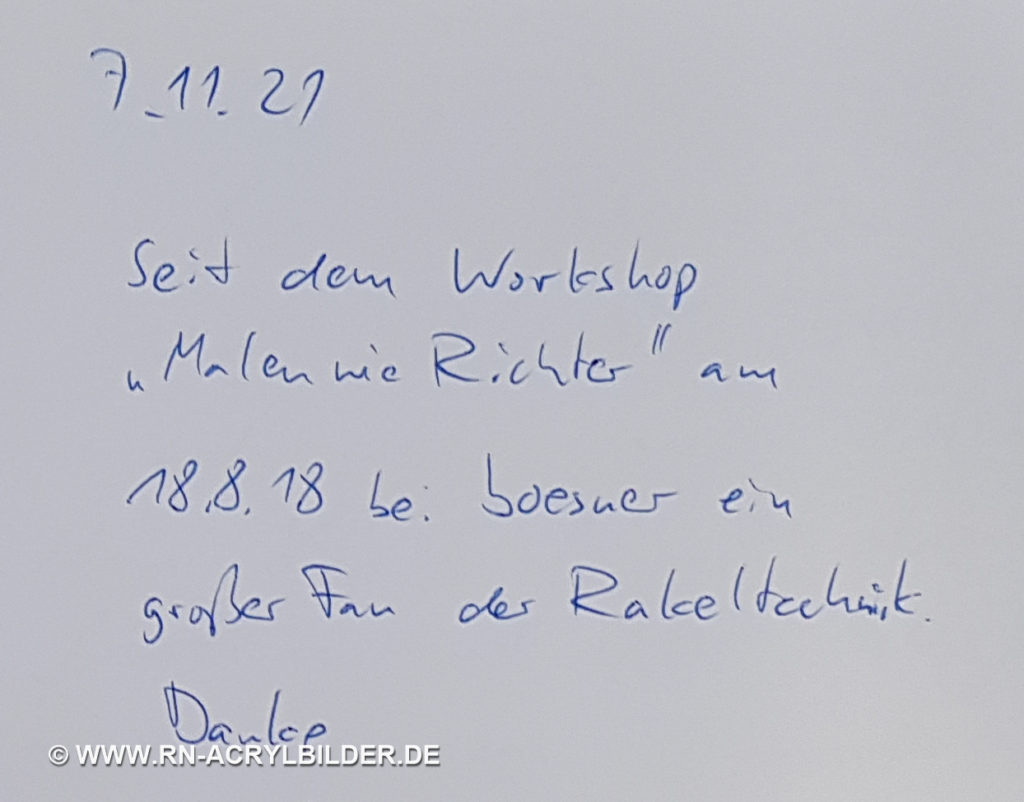 7.11.21
Seit dem Workshop
„Malen wie Richter" am
18.8.18 bei boesner ein
großer Fan der Rakeltechnik.
Danke
© WWW.RN-ACRYLBILDER.DE